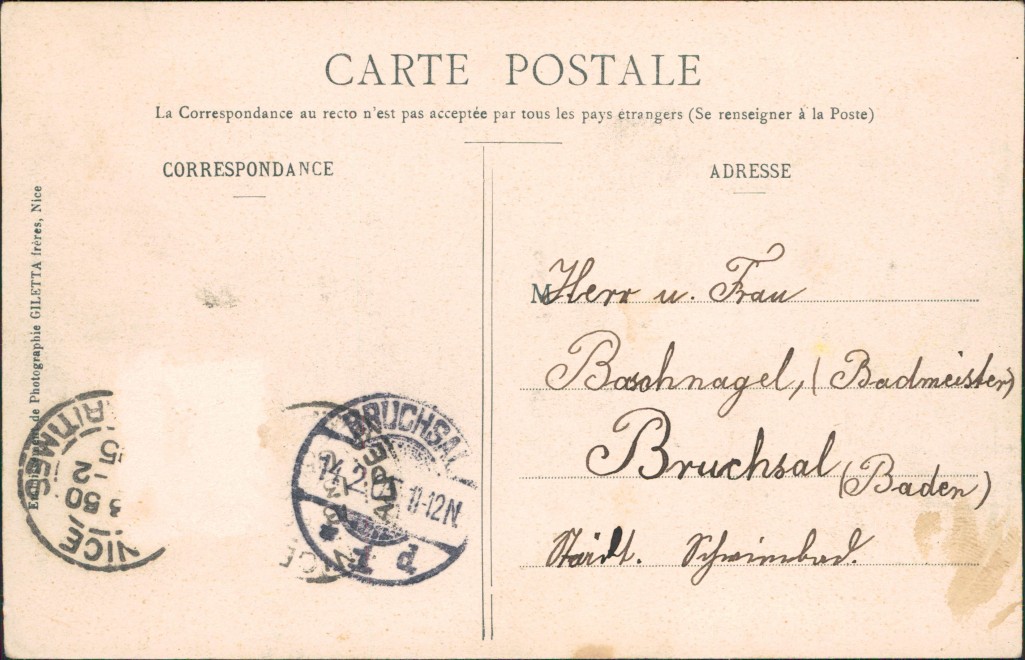 CARTE POSTALE
La Correspondance au recto n'est pas acceptée par tous les pays étrangers (Se renseigner à la Poste)
CORRESPONDANCE
de Photographie GILETTA frères, Nice
NICE
3 50
5 - 2
BRUCHSAL
14.2.
11-12 N.
* 1 d
NICE
ADRESSE
M Herr u. Frau
Boschnagel, (Badmeister)
Bruchsal (Baden)
Städt. Schwimbad.